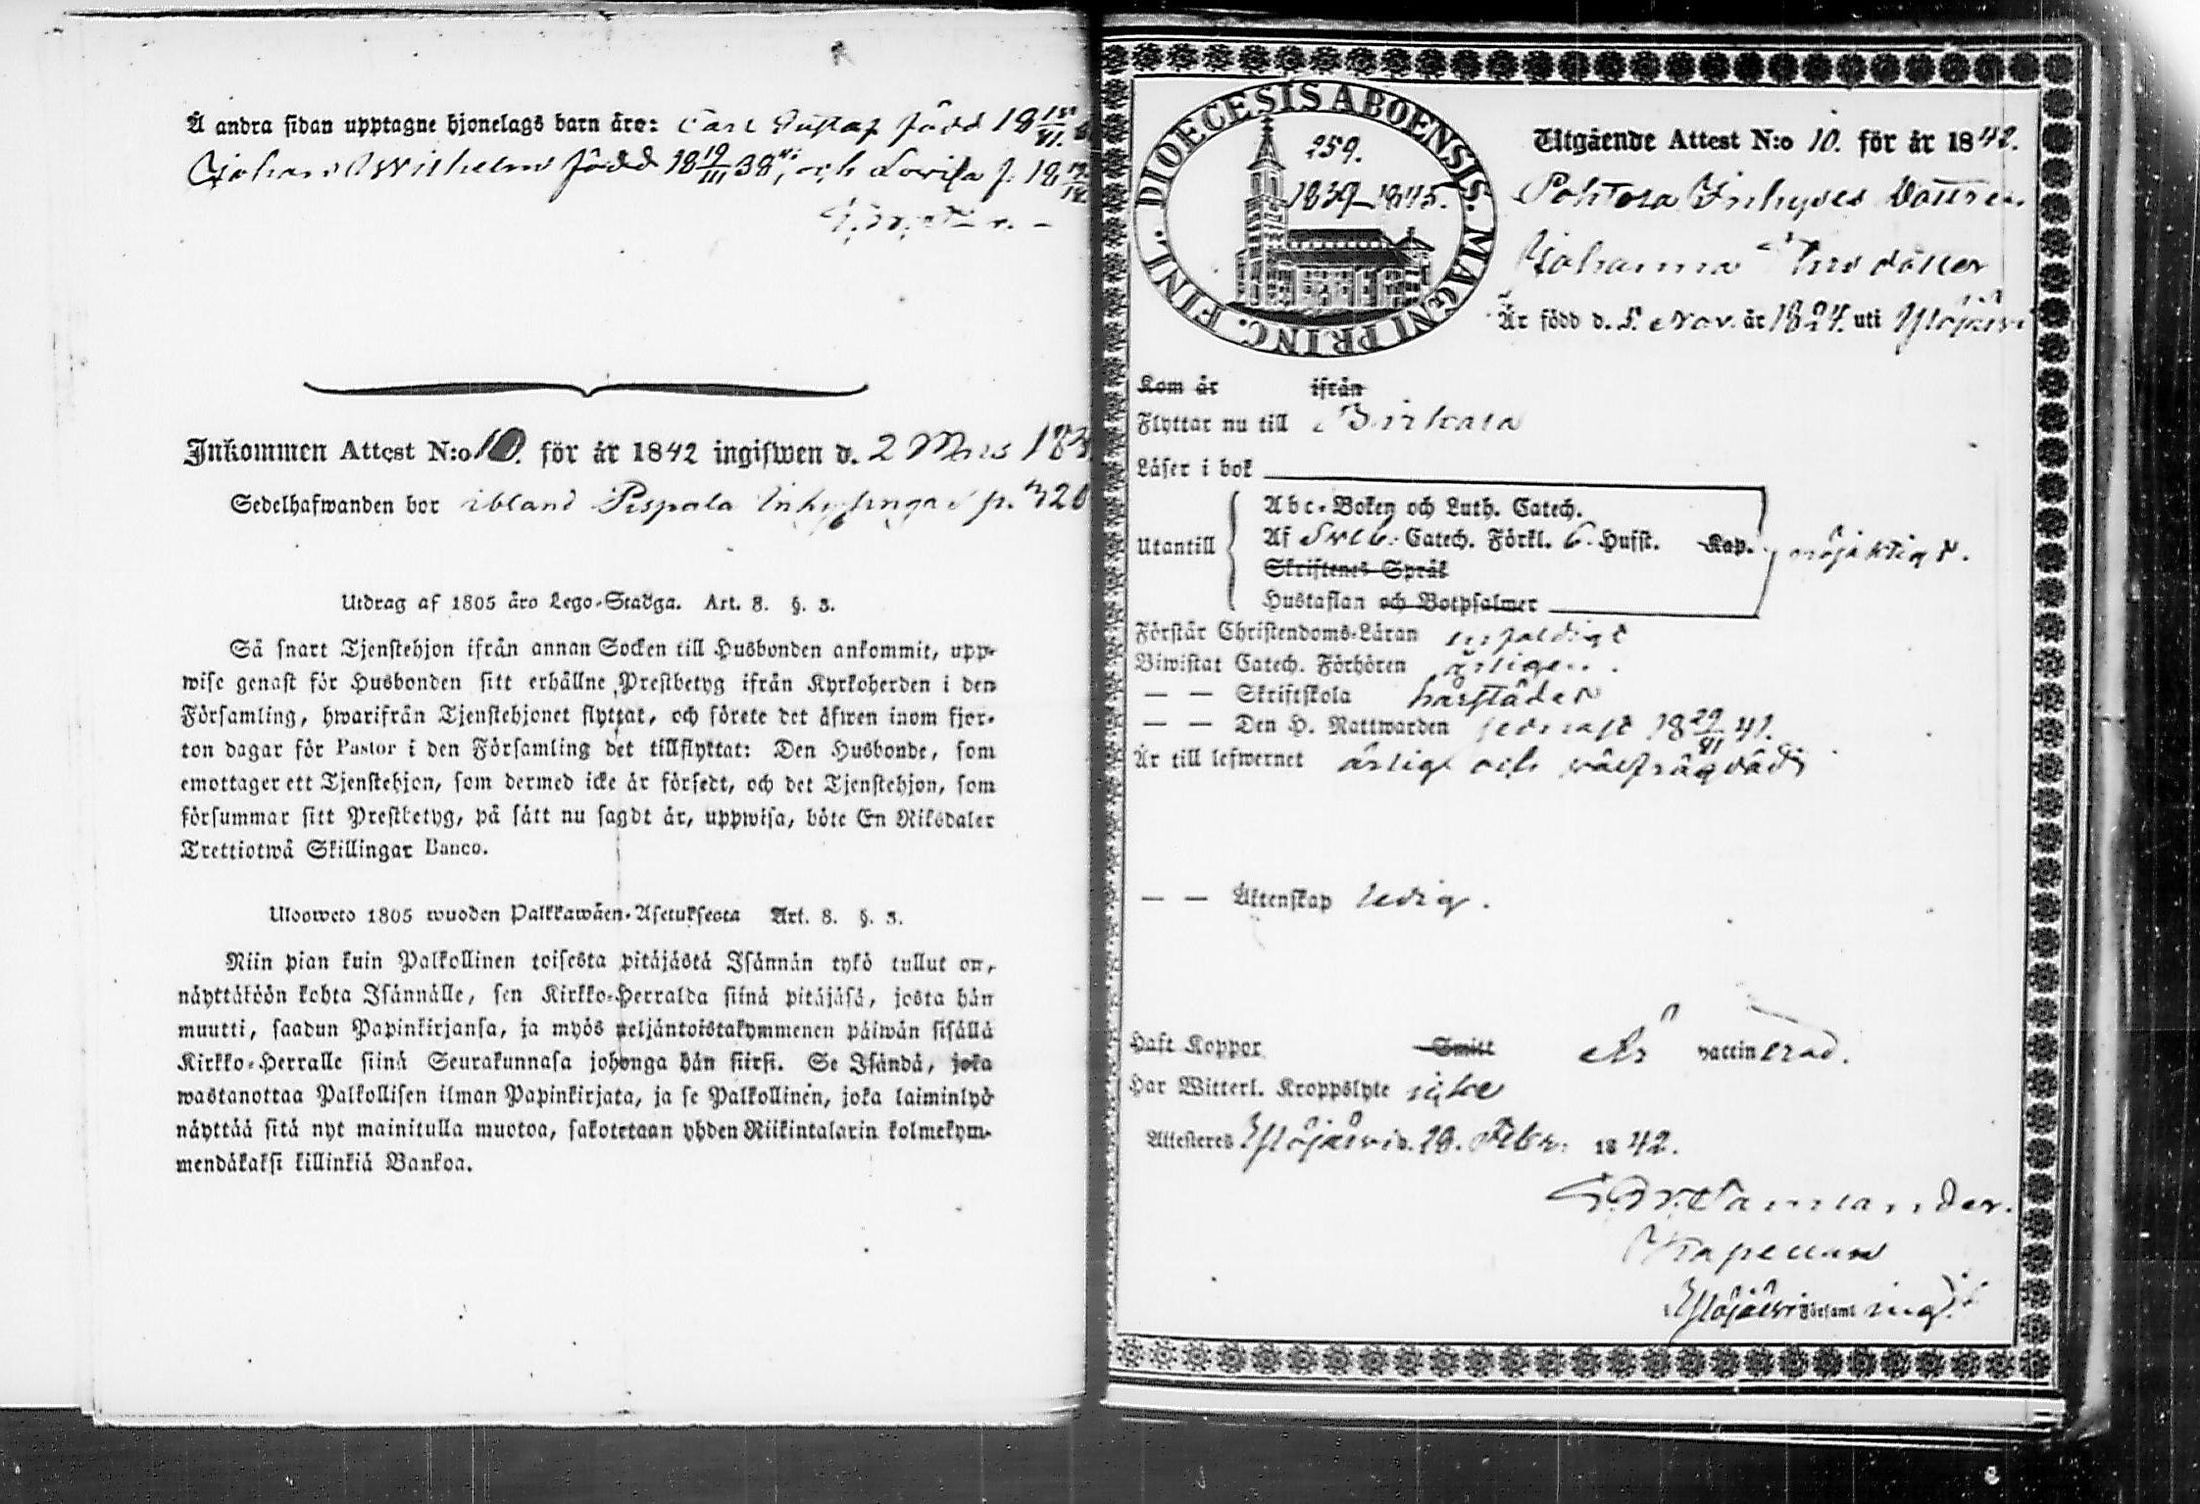 Å andra sidan upptagne hjonelags barn äro: Carl Gustaf född 18
Johan Wilhelm född 18 19/III 38, och Lovisa f. 18
Inkommen Attest N:o 10. för år 1842 ingifwen d. 2 Mars 18
Sedelhafwanden bor ibland Pispala Inhysinga p. 320
Utdrag af 1805 åro Lego-Stadga. Art. 8. §. 3.
Så snart Tjenstehjon ifrån annan Socken till Husbonden ankommit, upp-
wise genast för Husbonden sitt erhållne Prestbetyg ifrån Kyrkoherden i den
Församling, hwarifrån Tjenstehjonet flyttat, och förete det äfwen inom fjor-
ton dagar för Pastor i den Församling det tillflyttat: Den Husbonde, som
emottager ett Tjenstehjon, som dermed icke är försedt, och det Tjenstehjon, som
försummar sitt Prestbetyg, på sätt nu sagdt är, uppwisa, böte En Riksdaler
Trettiotwå Skillingar Banco.
Ulosweto 1805 wuoden Palkkawäen-Asetuksesta Art. 8. §. 3.
Niin pian kuin Palkollinen toisesta pitäjästä Isännän tykö tullut on,
näyttäköön kohta Isännälle, sen Kirkko-Herralda siinä pitäjäsä, josta hän
muutti, saadun Papinkirjansa, ja myös neljäntoistakymmenen päiwän sisällä
Kirkko-Herralle siinä Seurakunnasa johonga hän siirsi. Se Isändä, joka
wastanottaa Palkollisen ilman Papinkirjata, ja se Palkollinen, joka laiminlyö
näyttää sitä nyt mainitulla muotoa, sakotetaan yhden Riikintalarin kolmekym-
mendäkaksi killinkiä Bankoa.
DIOECESIS ABOENSIS. MAGNI PRINC. FINL.
259.
1839-1845.
Utgående Attest N:o 10. för år 1842.
Pohtola Inhyses Dottren
Johanna dotter
Är född d. 5. Nov. år 1824. uti Ylöjärvi
Kom år ifrån
Flyttar nu till Birkala
Läser i bok
Utantill
Abc-Boken och Luth. Catech.
Af Sveb. Catech. Förkl. 6. Hufst. Kap. nöjaktigt.
Skriftenes Språk
Hustaflan och Botpsalmer
Förstår Christendoms-Läran enfaldigt
Biwistat Catech. Förhören årligen.
— — Skriftskola harstädes
— — Den H. Nattwarden sednast 18 29/VI 41.
Är till lefwernet ärlig och välfrägdad
— — Äktenskap ledig.
Haft Koppor Smitt Är vaccinerad.
Har Witterl. Kroppslyte icke
Attesteres Ylöjärvi d. 28. Febr. 1842.
Kapellan
i Ylöjärvi Församling.